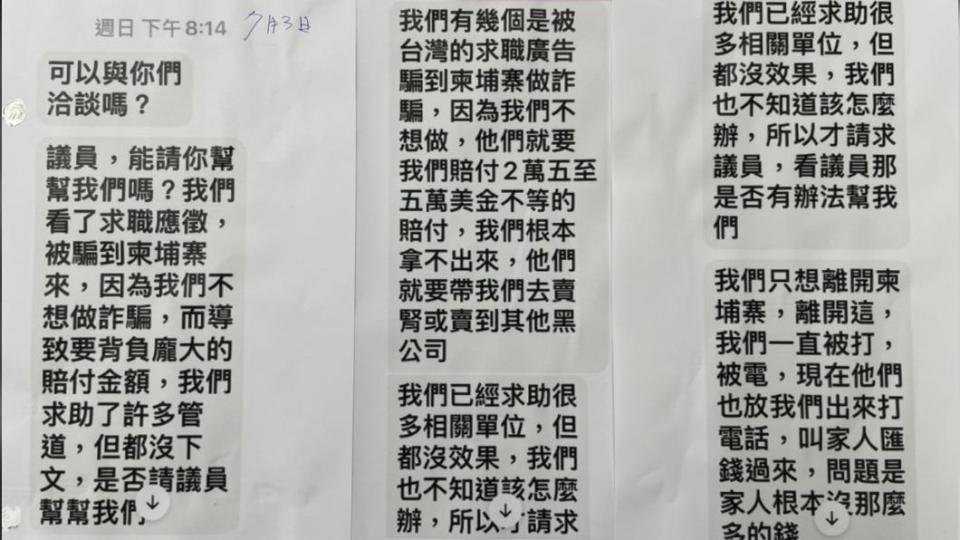 週日 下午8:14 7月3日
可以與你們
洽談嗎？
議員，能請你幫
幫我們嗎？我們
看了求職應徵，
被騙到柬埔寨
來，因為我們不
想做詐騙，而導
致要背負龐大的
賠付金額，我們
求助了許多管
道，但都沒下
文，是否請議員
幫幫我們
我們有幾個是被
台灣的求職廣告
騙到柬埔寨做詐
騙，因為我們不
想做，他們就要
我們賠付2萬五至
五萬美金不等的
賠付，我們根本
拿不出來，他們
就要帶我們去賣
腎或賣到其他黑
公司
我們已經求助很
多相關單位，但
都沒效果，我們
也不知道該怎麼
辦，所以才請求
我們已經求助很
多相關單位，但
都沒效果，我們
也不知道該怎麼
辦，所以才請求
議員，看議員那
是否有辦法幫我
們
我們只想離開柬
埔寨，離開這，
我們一直被打，
被電，現在他們
也放我們出來打
電話，叫家人匯
錢過來，問題是
家人根本沒那麼
多的錢